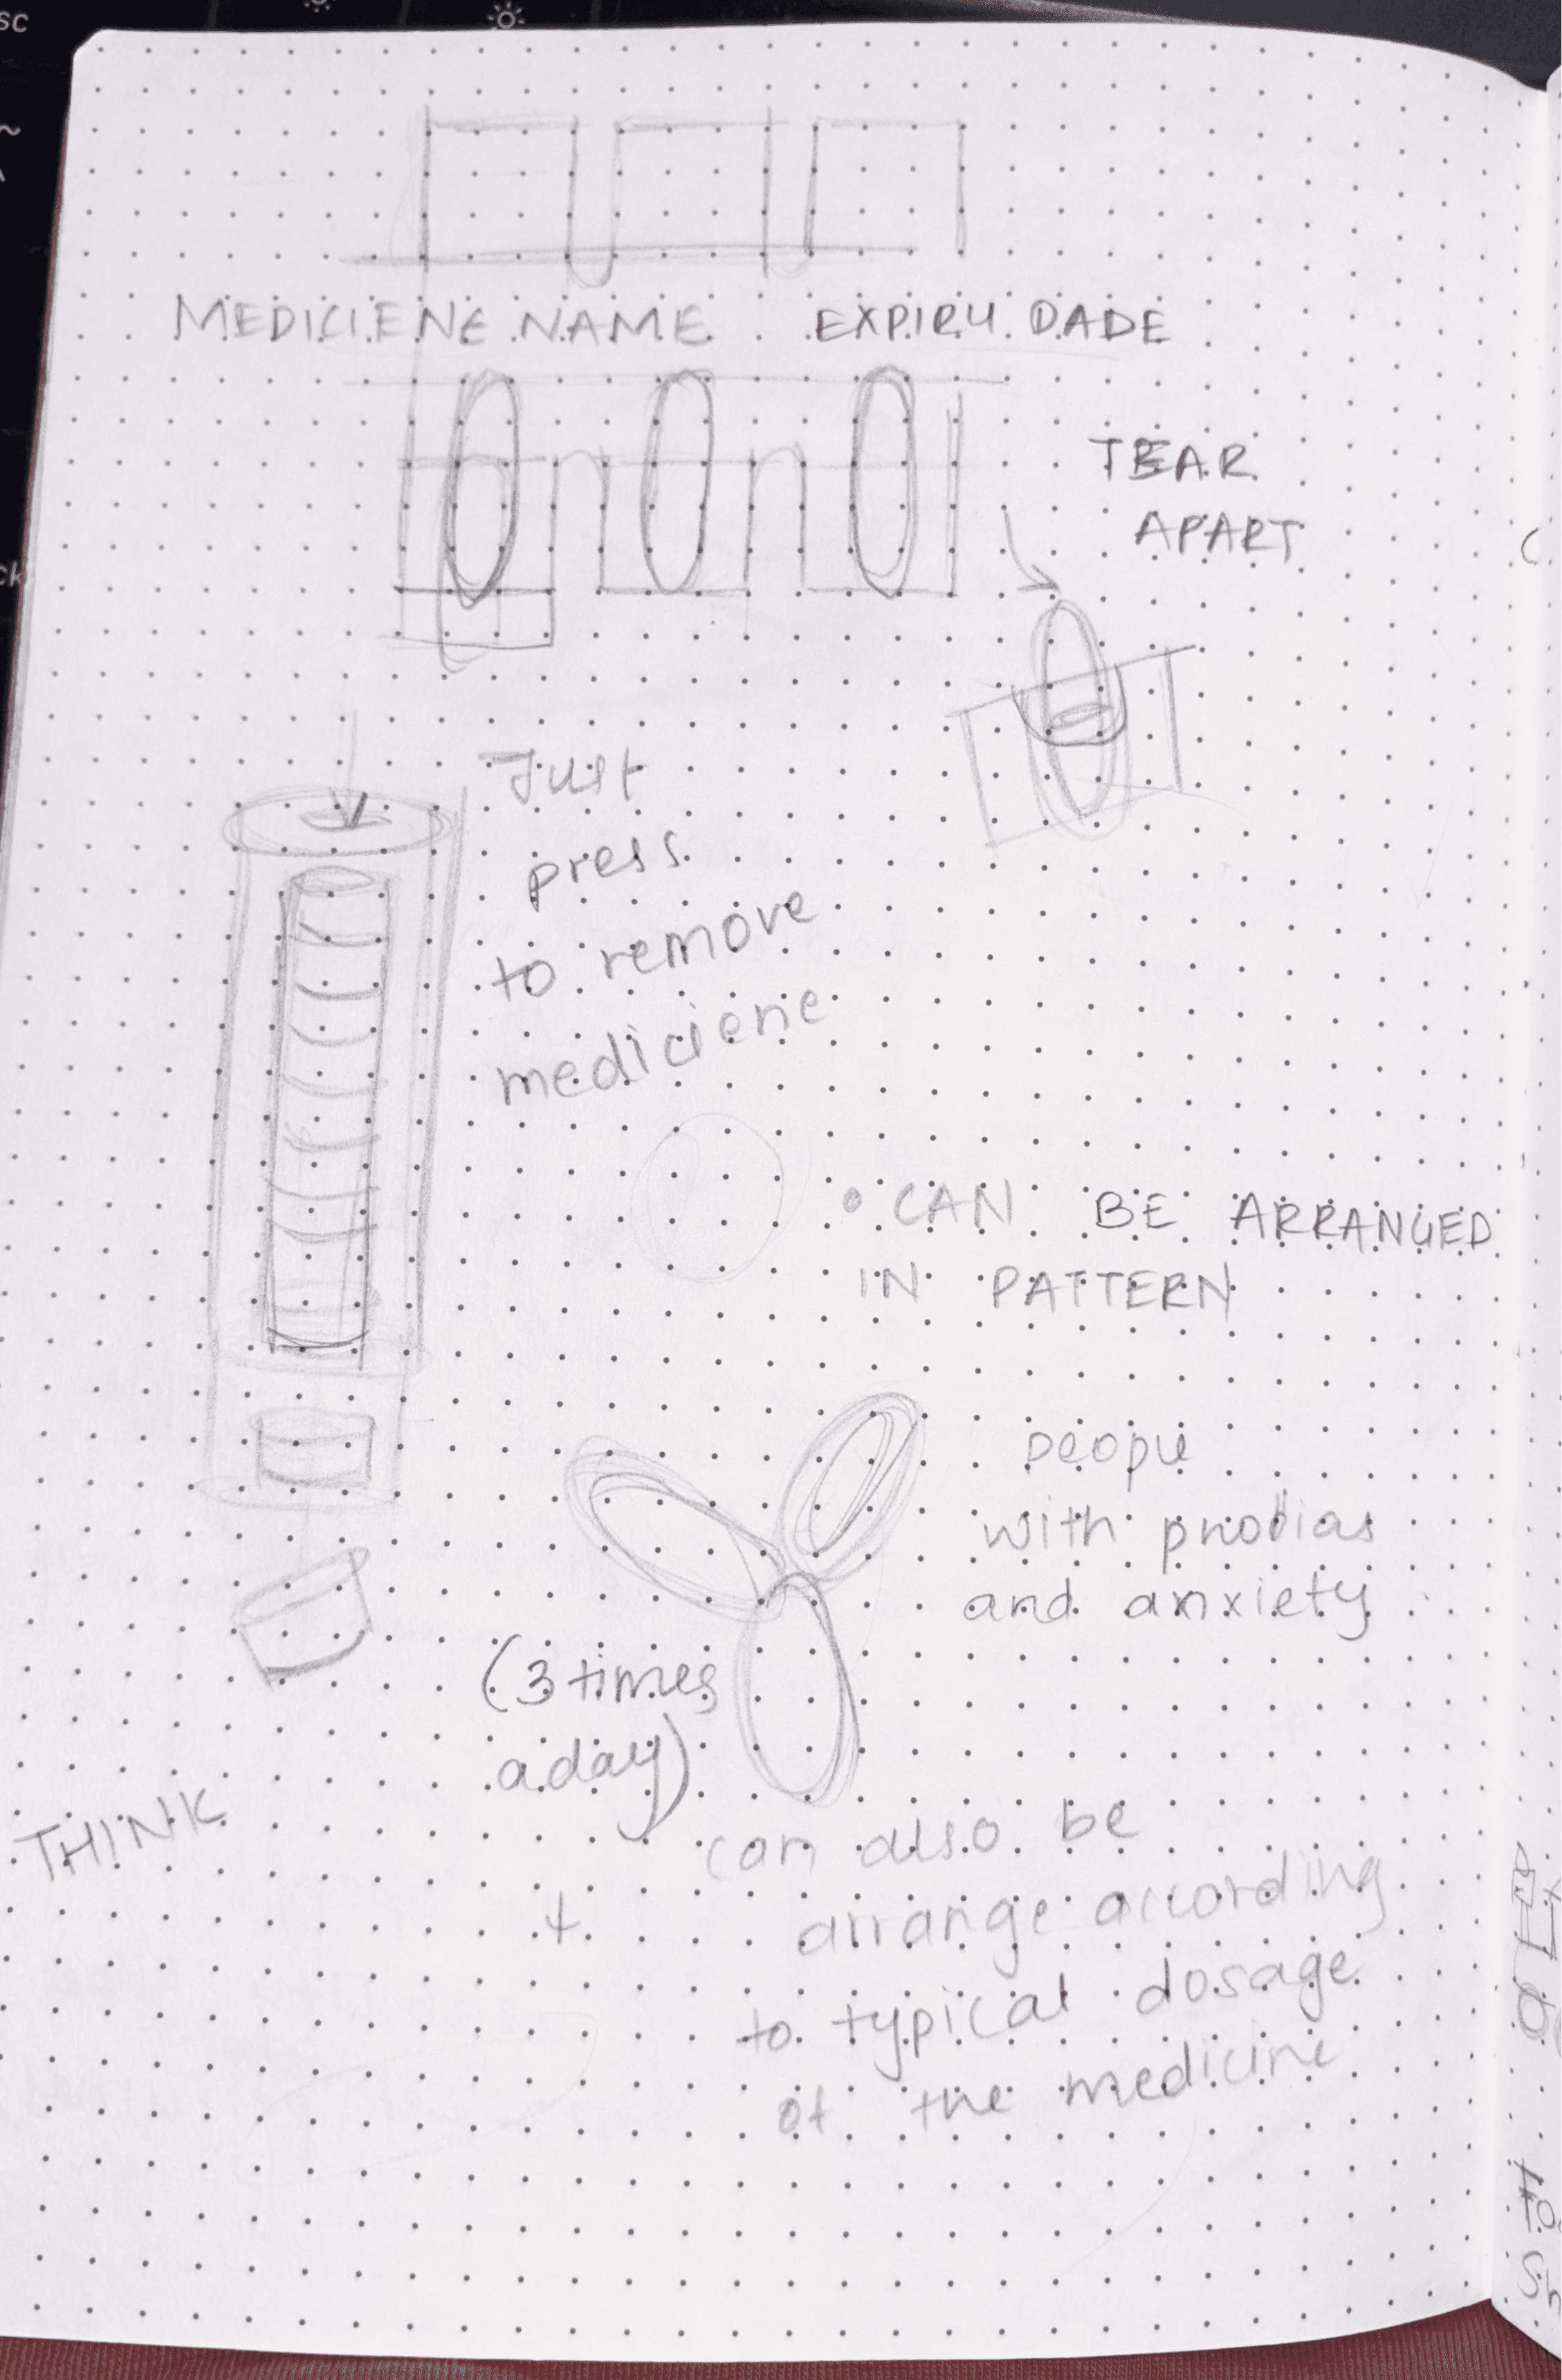 MEDICIENE NAME EXPIRY DADE
TEAR
APART
Just
press
to remove
mediciene
• CAN BE ARRANGED
IN PATTERN
people
with phobias
and anxiety
(3 times
a day)
THINK
can also be
arrange according
to typical dosage
of the medicine